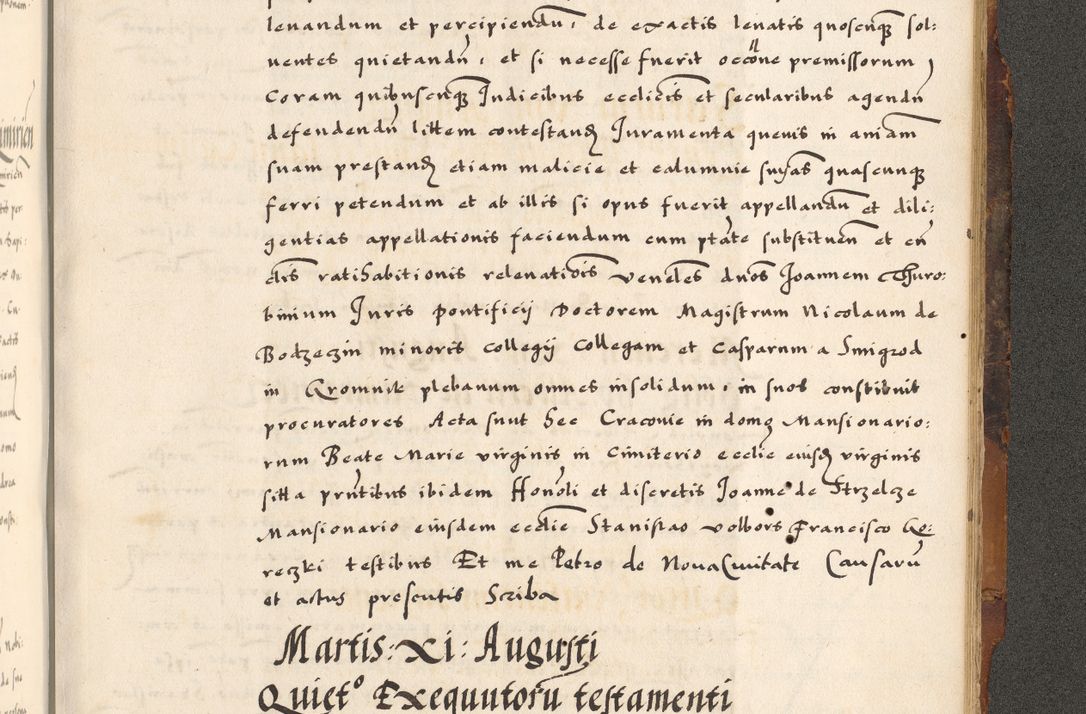 levandum et percipiendũ, de exactis levatis quoscunq̃ sol:
ventes quietandũ, et si necesse fuerit occõne premissorum
Coram quibuscunq̃ Iudicibus ecclicis et secularibus agendũ
defendendũ littem contestandũ Iuramenta quevis in aniam
suam prestandũ etiam malicie et calumnie suyas quascunq̃
ferri petendum et ab illis si opus fuerit appellandũ et dili:
gentias appellationis faciendum cum ptãte substituẽn et cũ
clis ratihabitionis relevatiõis venẽles dños Ioannem Thuro:
binium Iuris pontificij Doctorem Magistrum Nicolaum de
Bodzeczin minoris collegij Collegam et Casparum a Smigrod
in Kromnik plebanum omnes insolidum, in suos constituit
procuratores Acta sunt hec Cracovie in domo Mansionario:
rum Beate Marie virginis in Cimiterio ecclie eiusd virginis
sitta pñtibus ibidem Honoli et discretis Ioanne de Strzelcze
Mansionario eiusdem ecclie Stanislao volbors Francisco Go:
reczki testibus Et me Petro de Nova Civitate Causarũ
et actus presentis Scriba
Martis: XI: Augusti
Quietº Exequutorũ testamenti